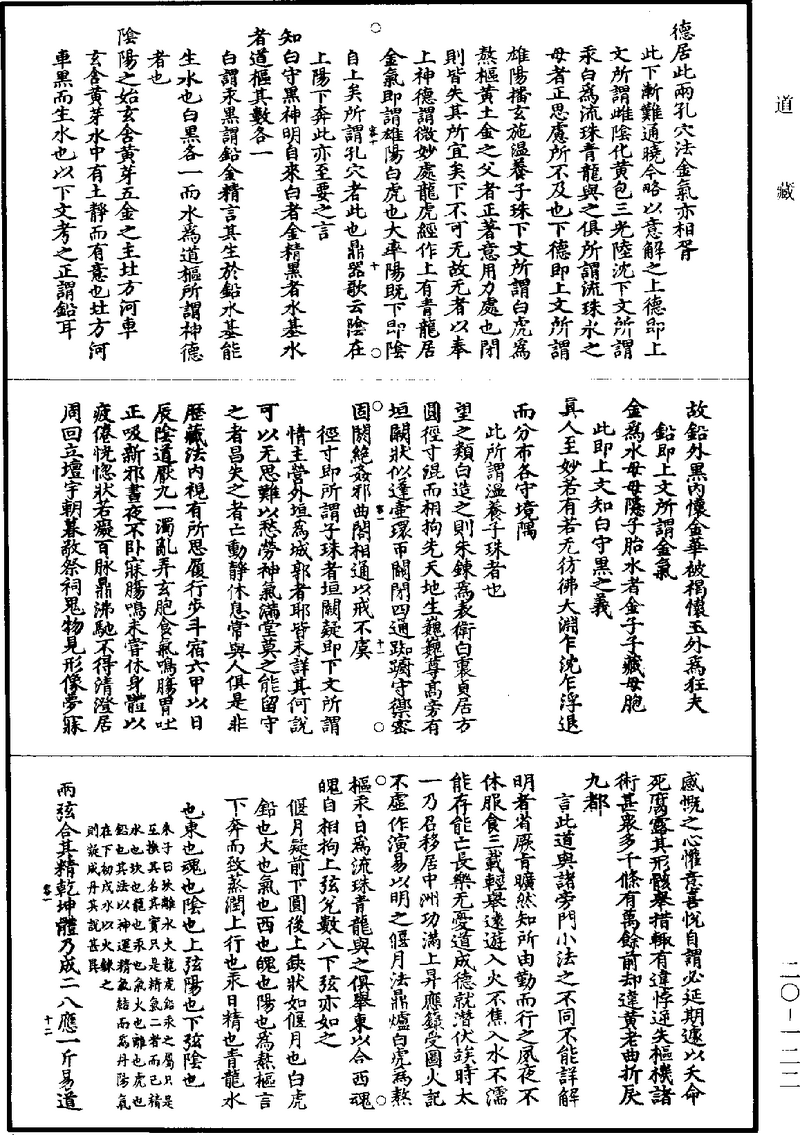 道藏
德居此兩孔穴法金氣亦相胥
此下漸難通曉今略以意解之上德即上
文所謂雌陰化黃包三光陸沈下文所謂
汞白為流珠青龍與之俱所謂流珠水之
母者正思慮所不及也下德即上文所謂
雄陽播玄施溫養子珠下文所謂白虎為
熬樞黃土金之父者正著意用力處也閉
則皆失其所宜矣下不可无故无者以奉
上神德謂微妙處龍虎經作上有青龍居
金氣即謂雄陽白虎也大率陽既下即陰
自上矣所謂孔穴者此也鼎器歌云陰在
上陽下奔此亦至要之言
知白守黑神明自來白者金精黑者水基水
者道樞其數各一
白謂汞黑謂鉛金精言其生於鉛水基能
生水也白黑各一而水為道樞所謂神德
者也
陰陽之始玄含黃芽五金之主北方河車
玄含黃芽水中有土靜而有意也北方河
車黑而生水也以下文考之正謂鉛耳
故鉛外黑內懷金華被褐懷玉外為狂夫
鉛即上文所謂金氣
金為水母母隱子胎水者金子子藏母胞
此即上文知白守黑之義
真人至妙若有若无彷彿大淵乍沈乍浮退
而分布各守境隅
此所謂溫養子珠者也
望之類白造之則朱鍊為表衛白裏貞居方
圓徑寸混而相拘先天地生巍巍尊高旁有
垣闕狀似蓬壺環帀關閉四通踟躕守禦密
固閼絕姦邪曲閣相通以戒不虞
徑寸即所謂子珠者垣闕疑即下文所謂
情主營外垣為城郭者耶皆未詳其何說
可以无思難以愁勞神氣滿堂莫之能留守
之者昌失之者亡動靜休息常與人俱是非
歷藏法內視有所思履行步斗宿六甲以日
辰陰道厭九一濁亂弄玄胞食氣鳴腸胃吐
正吸新邪晝夜不卧寐腸鳴未嘗休身體以
疲倦恍惚狀若癡百脉鼎沸馳不得清澄居
周回立壇宇朝暮敬祭祠鬼物見形像夢寐
感慨之心懽意喜悅自謂必延期遽以夭命
死腐露其形骸舉措輒有違悖逆失樞機諸
術甚衆多千條有萬餘前却違黃老曲折戾
九都
言此道與諸旁門小法之不同不能詳解
明者省厥旨曠然知所由勤而行之夙夜不
休服食三載輕舉遠遊入火不焦入水不濡
能存能亡長樂无憂道成德就潛伏竢時太
一乃召移居中洲功滿上昇應籙受圖火記
不虛作演易以明之偃月法鼎爐白虎為熬
樞汞日為流珠青龍與之俱舉東以合西魂
魄自相拘上弦兌數八下弦亦如之
偃月疑前下圓後上缺狀如偃月也白虎
鉛也火也氣也西也魄也陽也為熬樞言
下奔而致蒸潤上行也汞日精也青龍水
也東也魂也陰也上弦陽也下弦陰也
朱子曰坎離水火龍虎鉛汞之屬只是
互換其名其實只是精氣二者而已精
水也坎也龍也汞也氣火也離也虎也
鉛也其法以神運精氣結而為丹陽氣
在下初成水以火鍊之
則凝成丹其說甚異
兩弦合其精乾坤體乃成二八應一斤易道
二〇-一二二